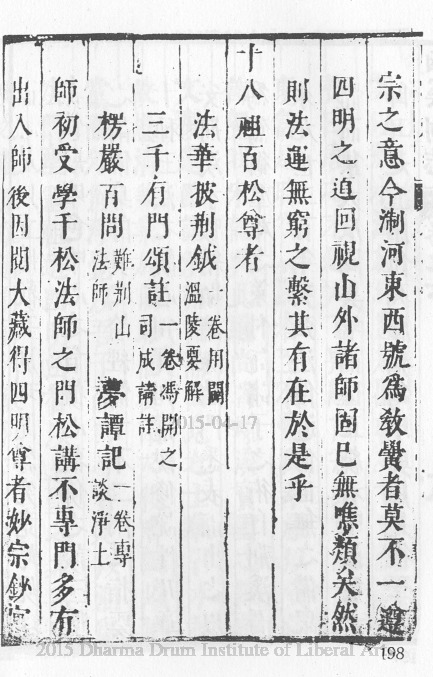 宗之意今淛河東西號為教黌者莫不一遵
四明之道回視山外諸師固已無噍類矣然
則法運無窮之繫其有在於是乎
十八祖百松尊者
法華披荆鉞一卷用闢
溫陵要解
三千有門頌註一卷馮開之
司成請註
楞嚴百問難荆山
法師
夢譚記一卷專
談淨土
師初受學千松法師之門松講不專門多有
出入師後因閱大藏得四明尊者妙宗鈔
198
2015-04-17
2015 Dharma Drum Institute of Liberal Arts